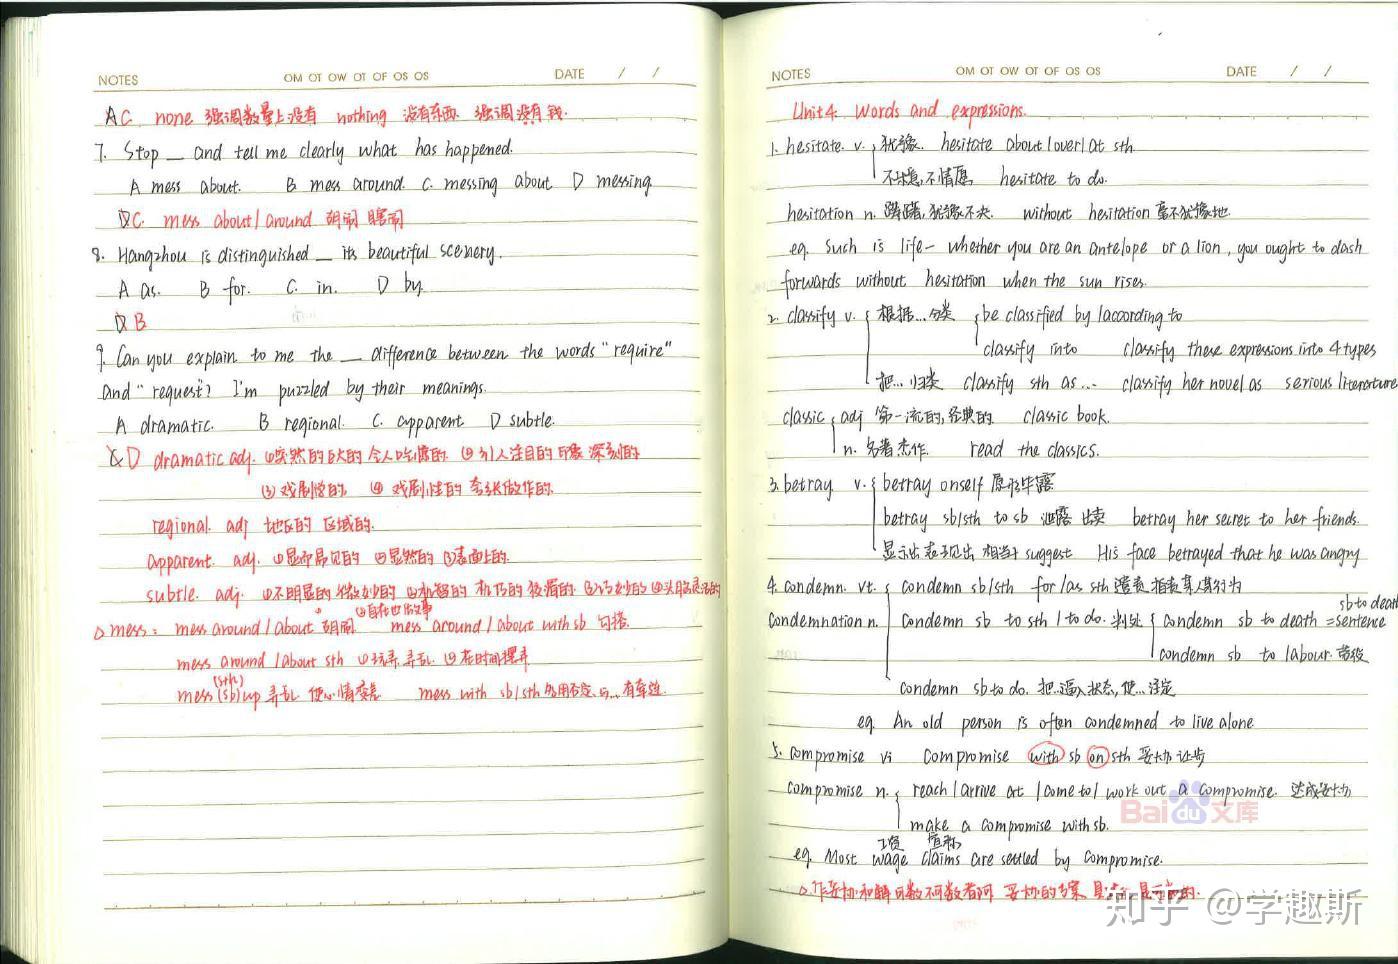 NOTES OM OT OW OT OF OS OS DATE / /
AC none 强调数量上没有 nothing 没有东西 强调没有钱.
7. Stop __ and tell me clearly what has happened.
A mess about. B mess around. C. messing about D messing
C. mess about/around 胡闹 瞎闹
8. Hangzhou is distinguished __ its beautiful scenery.
A as. B for. C. in. D by.
B
9. Can you explain to me the __ difference between the words "require"
and "request"? I'm puzzled by their meanings.
A dramatic. B regional. C. apparent D subtle.
D dramatic adj. ①突然的 巨大的 令人吃惊的. ②引人注目的 印象深刻的
③戏剧的. ④戏剧性的 夸张做作的.
regional. adj 地区的 区域的.
apparent. adj. ①显而易见的 ②显然的 ③表面上的.
subtle. adj. ①不明显的 微妙的 ②机智的 机巧的 狡猾的. ③巧妙的 ④头脑灵活的
△ mess: mess around/about 胡闹 mess around/about with sb 勾搭.
mess around/about sth ①玩弄 弄乱 ②花时间摆弄
(sth)
mess (sb) up 弄乱 使心情变差 mess with sb/sth 多用否定 与...有牵连.
NOTES OM OT OW OT OF OS OS DATE / /
Unit 4: Words and expressions.
1. hesitate. v. 犹豫. hesitate about/over/at sth
不愿,不情愿 hesitate to do.
hesitation n. 踌躇, 犹豫不决. without hesitation 毫不犹豫地.
eg. Such is life — whether you are an antelope or a lion, you ought to dash
forwards without hesitation when the sun rises.
2. classify v. 根据...分类 be classified by/according to
classify into classify these expressions into 4 types
把...归类 classify sth as ... classify her novel as serious literature
classic adj 第一流的,经典的 classic book.
n. 名著 杰作. read the classics.
3. betray v. betray onself 原形毕露
betray sb/sth to sb 泄露 出卖 betray her secret to her friends.
显示出 表现出 相当于 suggest His face betrayed that he was angry
4. condemn. vt. condemn sb/sth for/as sth 谴责 指责某人某行为
sb to death
condemnation n. condemn sb to sth/to do. 判处 condemn sb to death = sentence
condemn sb to labour. 苦役
condemn sb to do. 把...逼入状态, 使...注定
eg. An old person is often condemned to live alone
5. compromise vi compromise with sb on sth 妥协 让步
compromise n. reach/arrive at/come to/work out a compromise. 达成妥协
make a compromise with sb.
工资 宣称
eg. Most wage claims are settled by compromise.
Baidu文库
知乎 @学趣斯